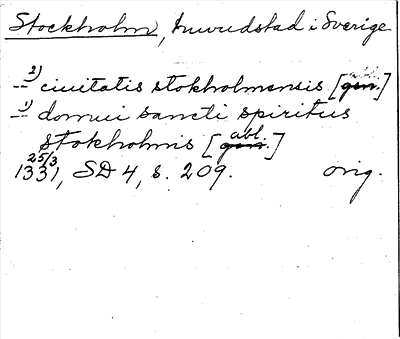 Stockholm, huvudstad i Sverige
-- 2) ciuitatis stokholmensis [gen.]
-- 1) domui sancti spiritus
stokholmis [gen. abl.]
25/3
1331, SD 4, s. 209. orig.